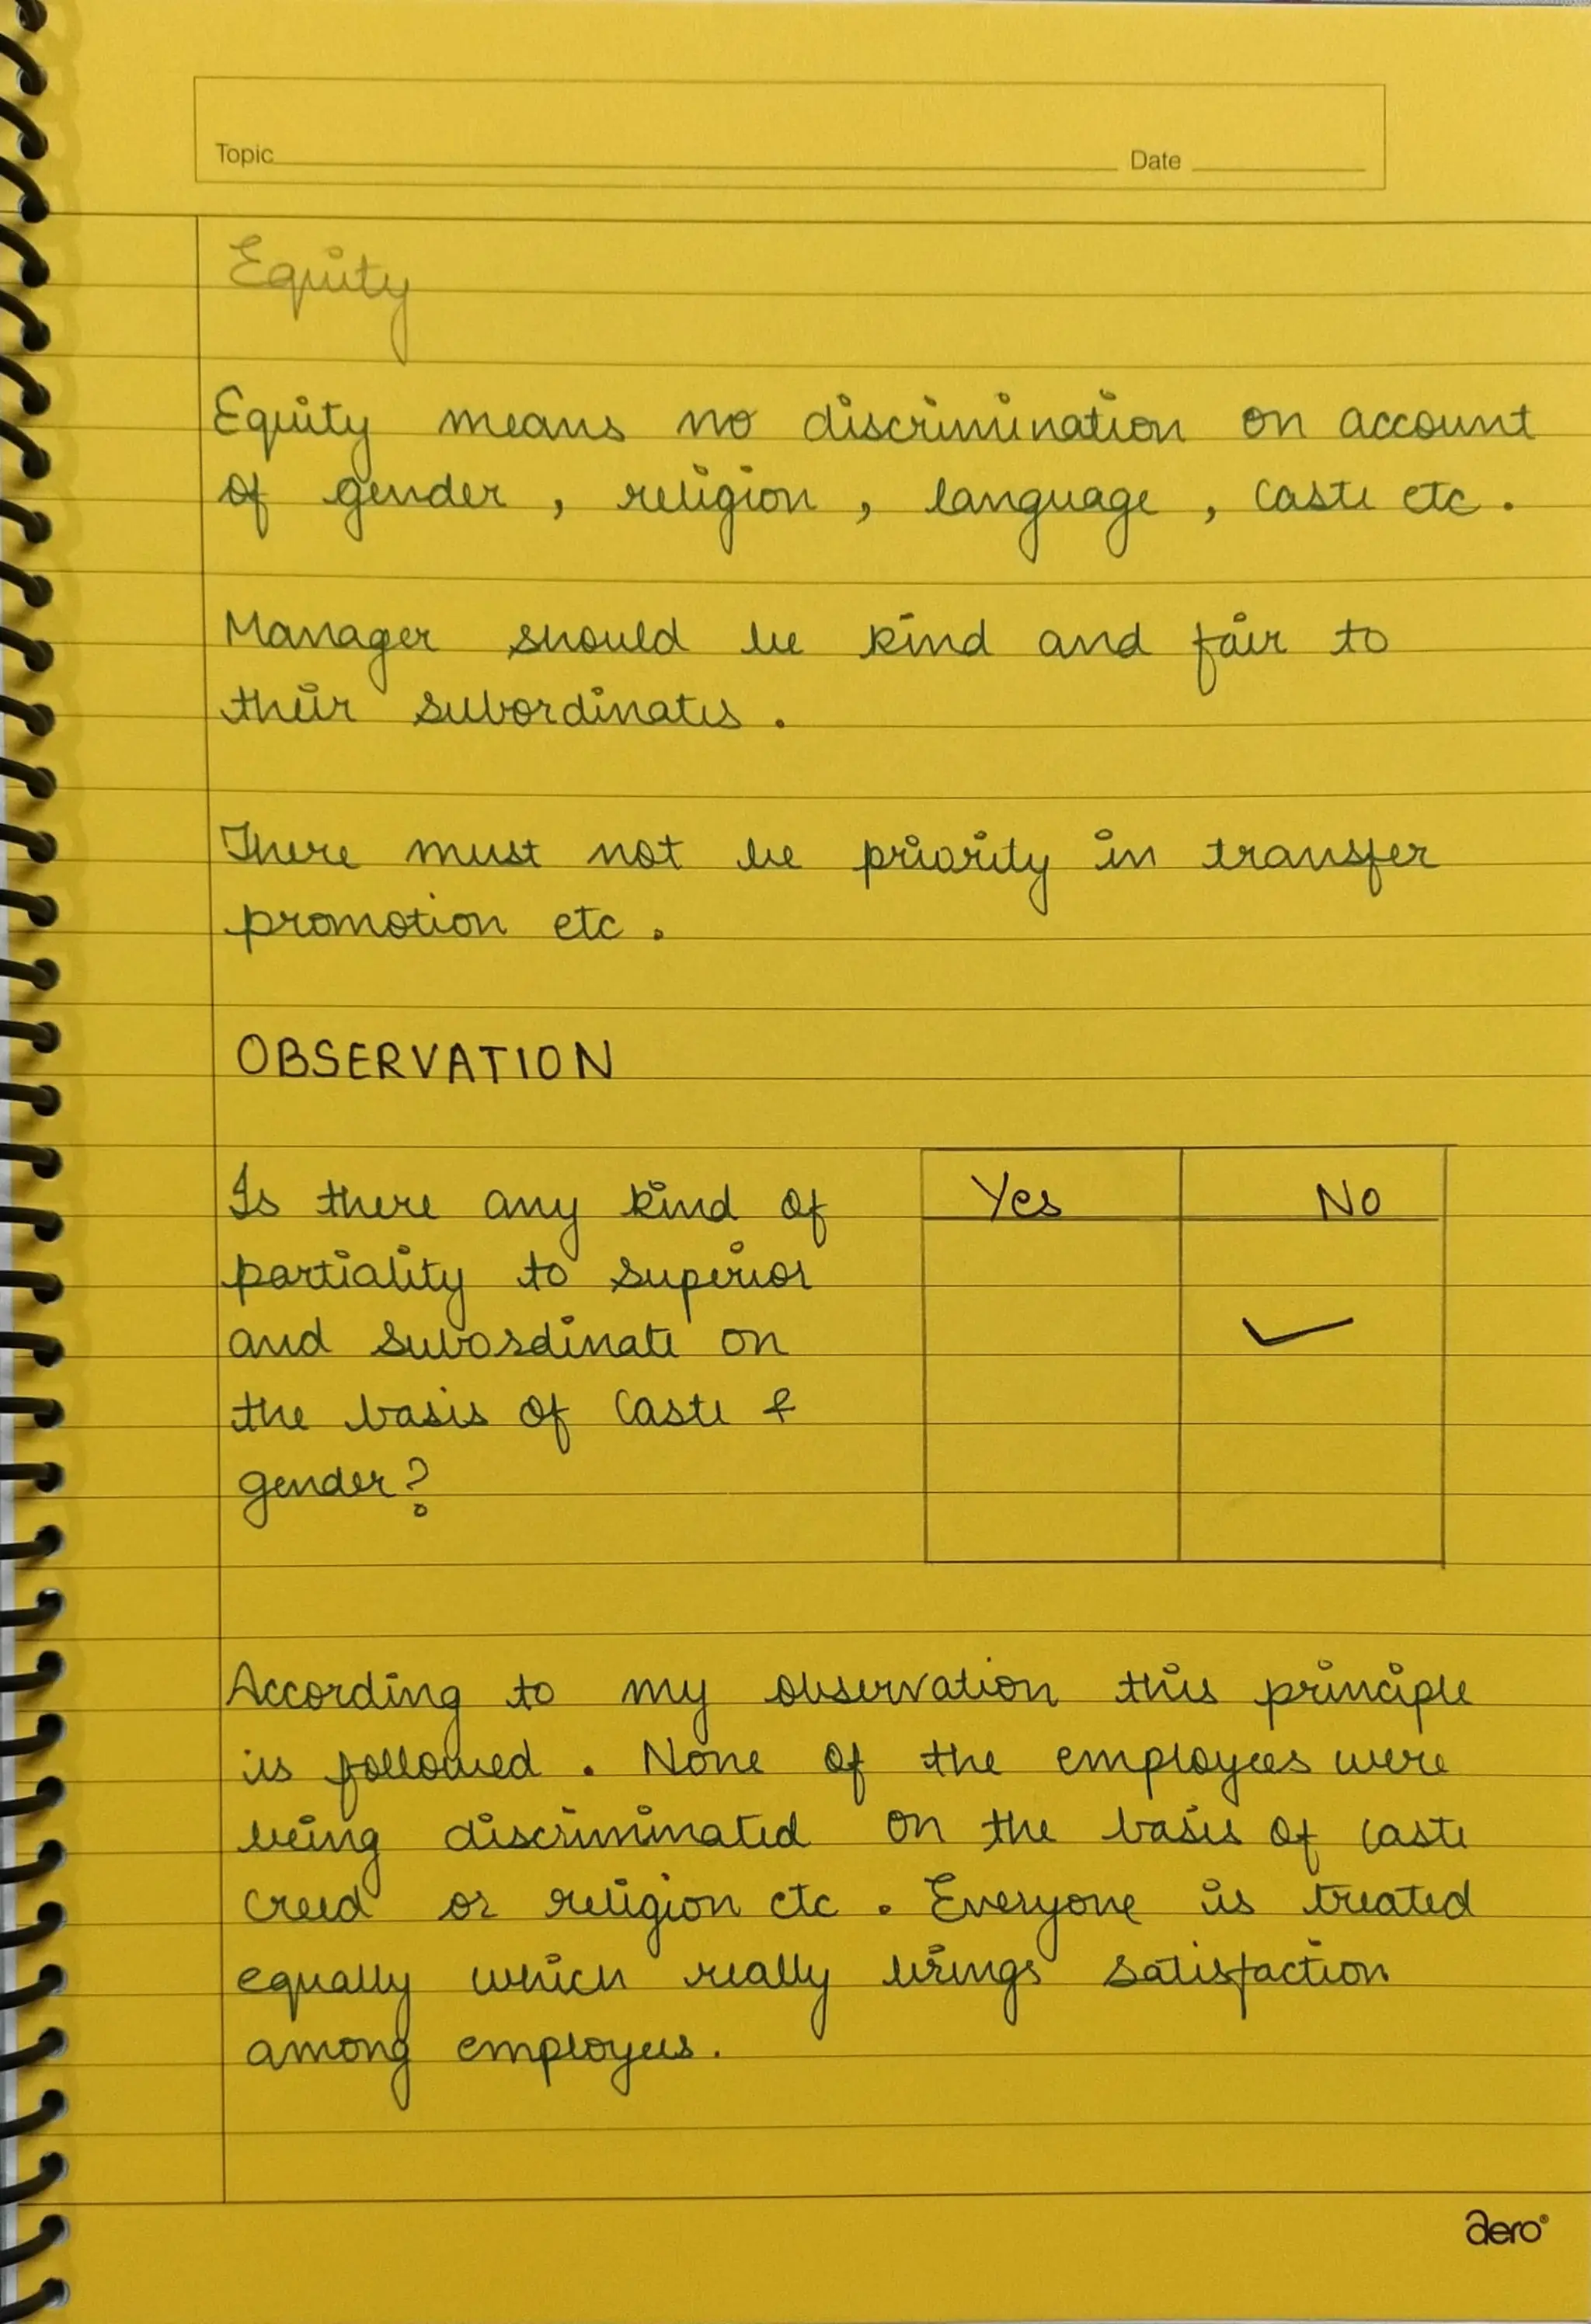 Topic Date
Equity
Equity means no discrimination on account
of gender , religion , language , caste etc .
Manager should be kind and fair to
their subordinates .
There must not be priority in transfer
promotion etc .
OBSERVATION
Is there any kind of Yes No
partiality to superior
and subordinate on ✓
the basis of caste &
gender?
According to my observation this principle
is followed . None of the employees were
being discriminated on the basis of caste
creed or religion etc . Everyone is treated
equally which really brings satisfaction
among employees .
aero®